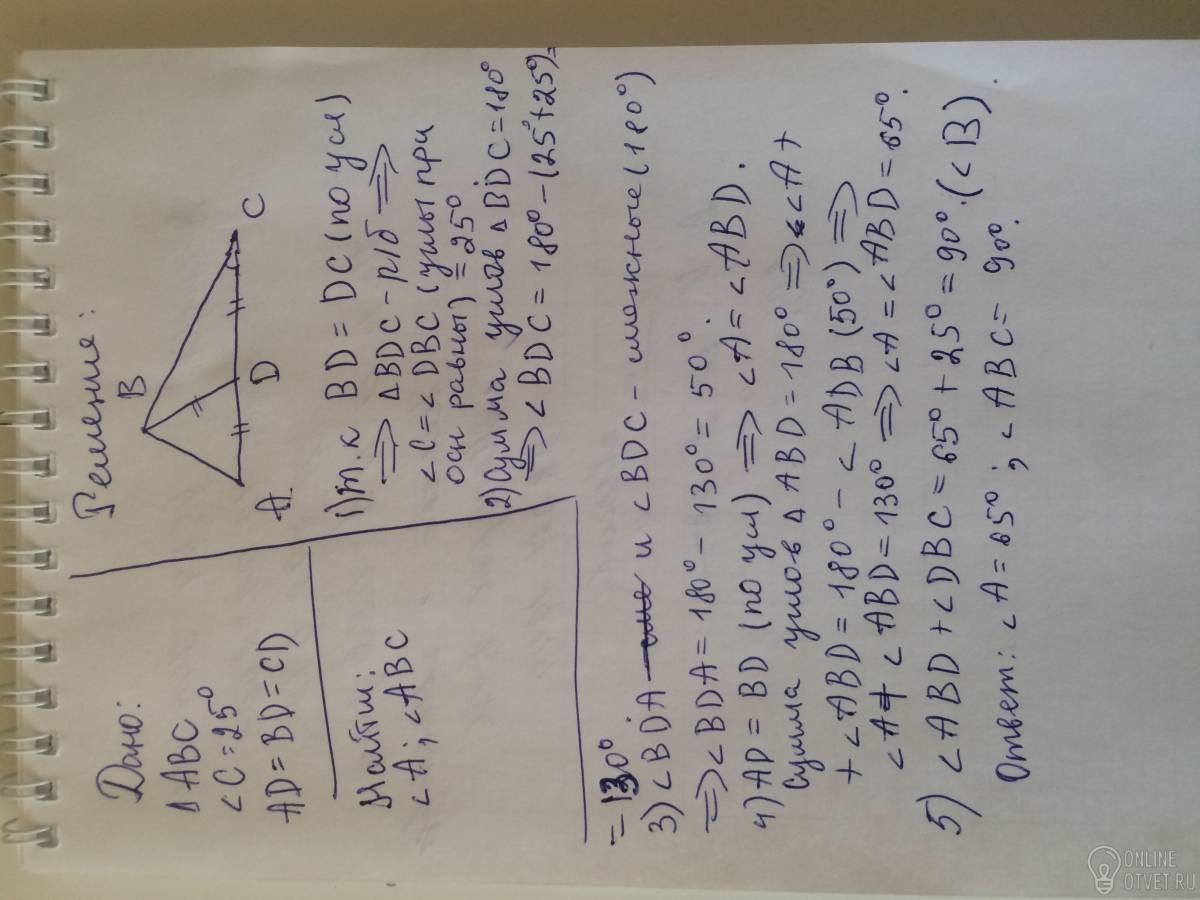 Дано:
△ABC
∠C=25°
AD=BD=CD
Найти:
∠A; ∠ABC
Решение:
B
A.
D
C
1) т.к BD = DC (по усл)
⟹ △BDC - р/б ⟹
∠C=∠DBC (углы при
осн равны) = 25°
2) Сумма углов △BDC=180°
⟹ ∠BDC = 180° - (25°+25°)=
=130°
3) ∠BDA и ∠BDC - смежные (180°)
⟹ ∠BDA = 180° - 130° = 50°.
4) AD = BD (по усл) ⟹ ∠A = ∠ABD.
Сумма углов △ABD = 180° ⟹ ∠A +
+ ∠ABD = 180° - ∠ADB (50°) ⟹
∠A + ∠ABD = 130° ⟹ ∠A = ∠ABD = 65°.
5) ∠ABD + ∠DBC = 65° + 25° = 90°. (∠B)
Ответ: ∠A = 65°; ∠ABC = 90°.
ONLINE
OTVET.RU